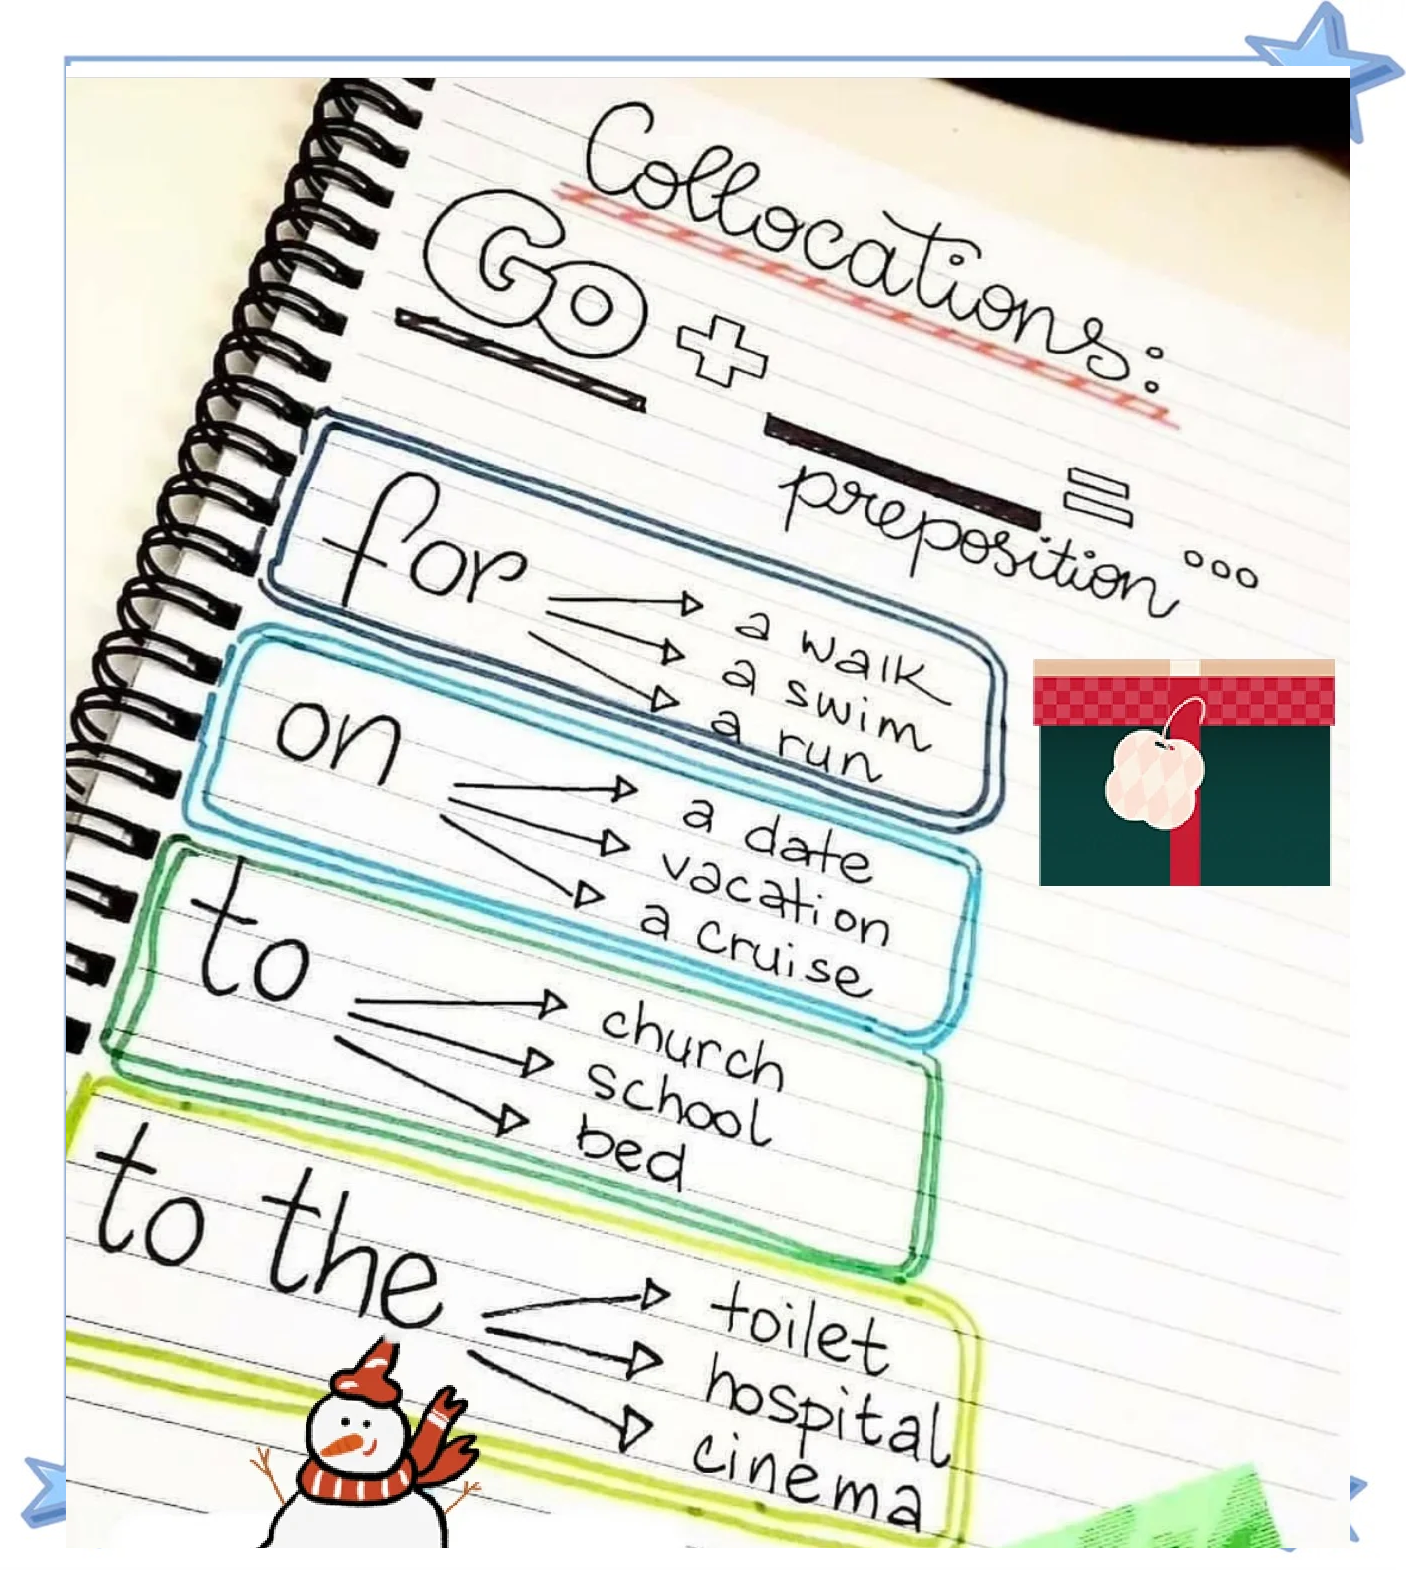 Collocations:
Go + ___ = ...
preposition
for
a walk
a swim
a run
on
a date
vacation
a cruise
to
church
school
bed
to the
toilet
hospital
cinema